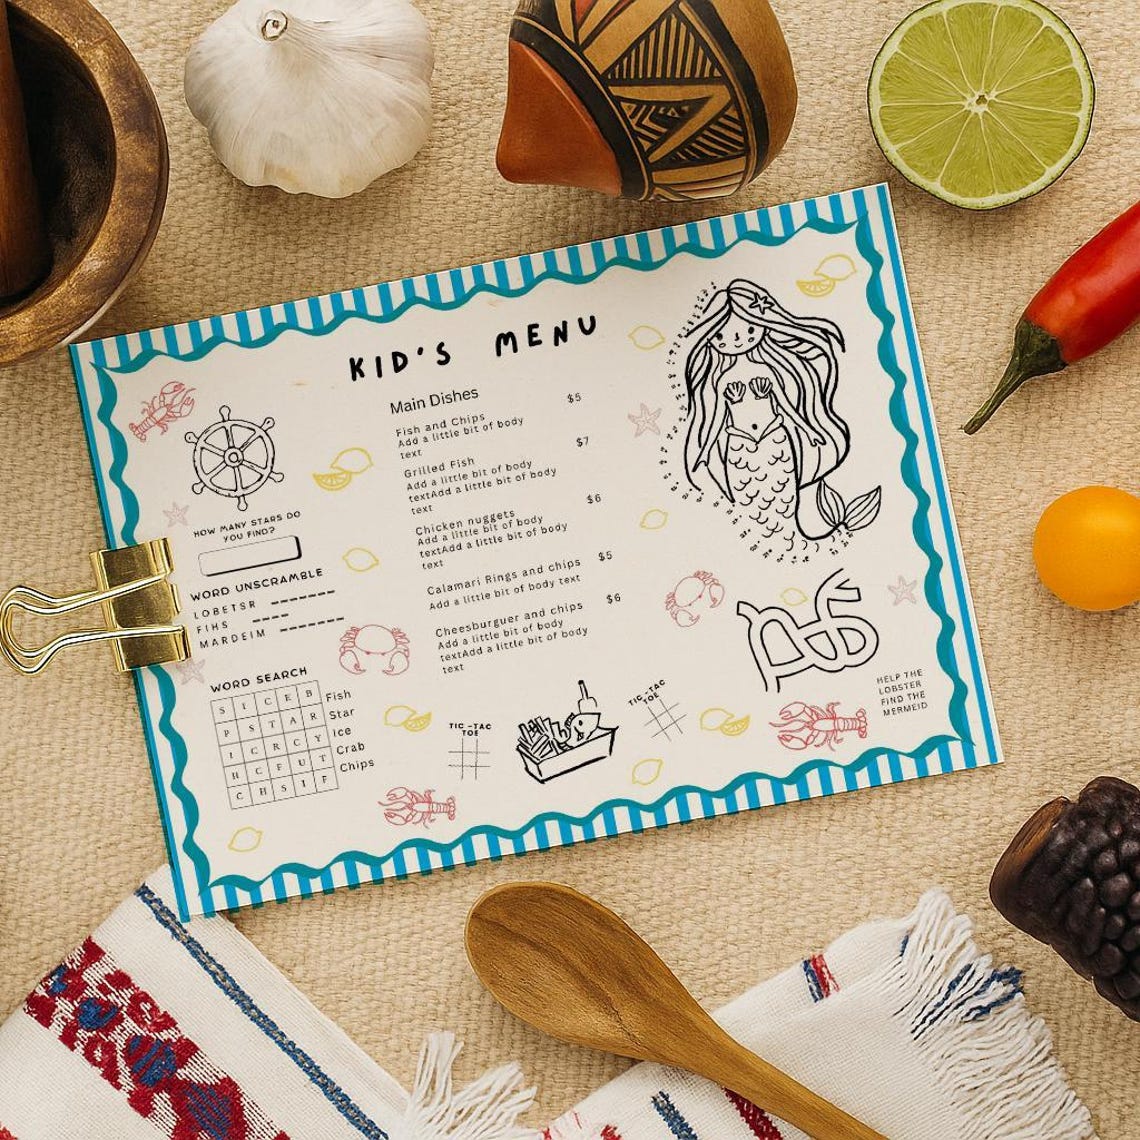 KID'S MENU
Main Dishes
Fish and Chips $5
Add a little bit of body
text
Grilled Fish $7
Add a little bit of body
textAdd a little bit of body
text
Chicken nuggets $6
Add a little bit of body
textAdd a little bit of body
text
Calamari Rings and chips $5
Add a little bit of body text
Cheesburguer and chips $6
Add a little bit of body
textAdd a little bit of body
text
HOW MANY STARS DO
YOU FIND?
WORD UNSCRAMBLE
LOBETSR -------
FIHS ----
MARDEIM -------
WORD SEARCH
S I C E B
P S T A R
I C R C Y
H C F U T
C H S I F
Fish
Star
Ice
Crab
Chips
TIC-TAC
TOE
TIC-TAC
TOE
HELP THE
LOBSTER
FIND THE
MERMEID